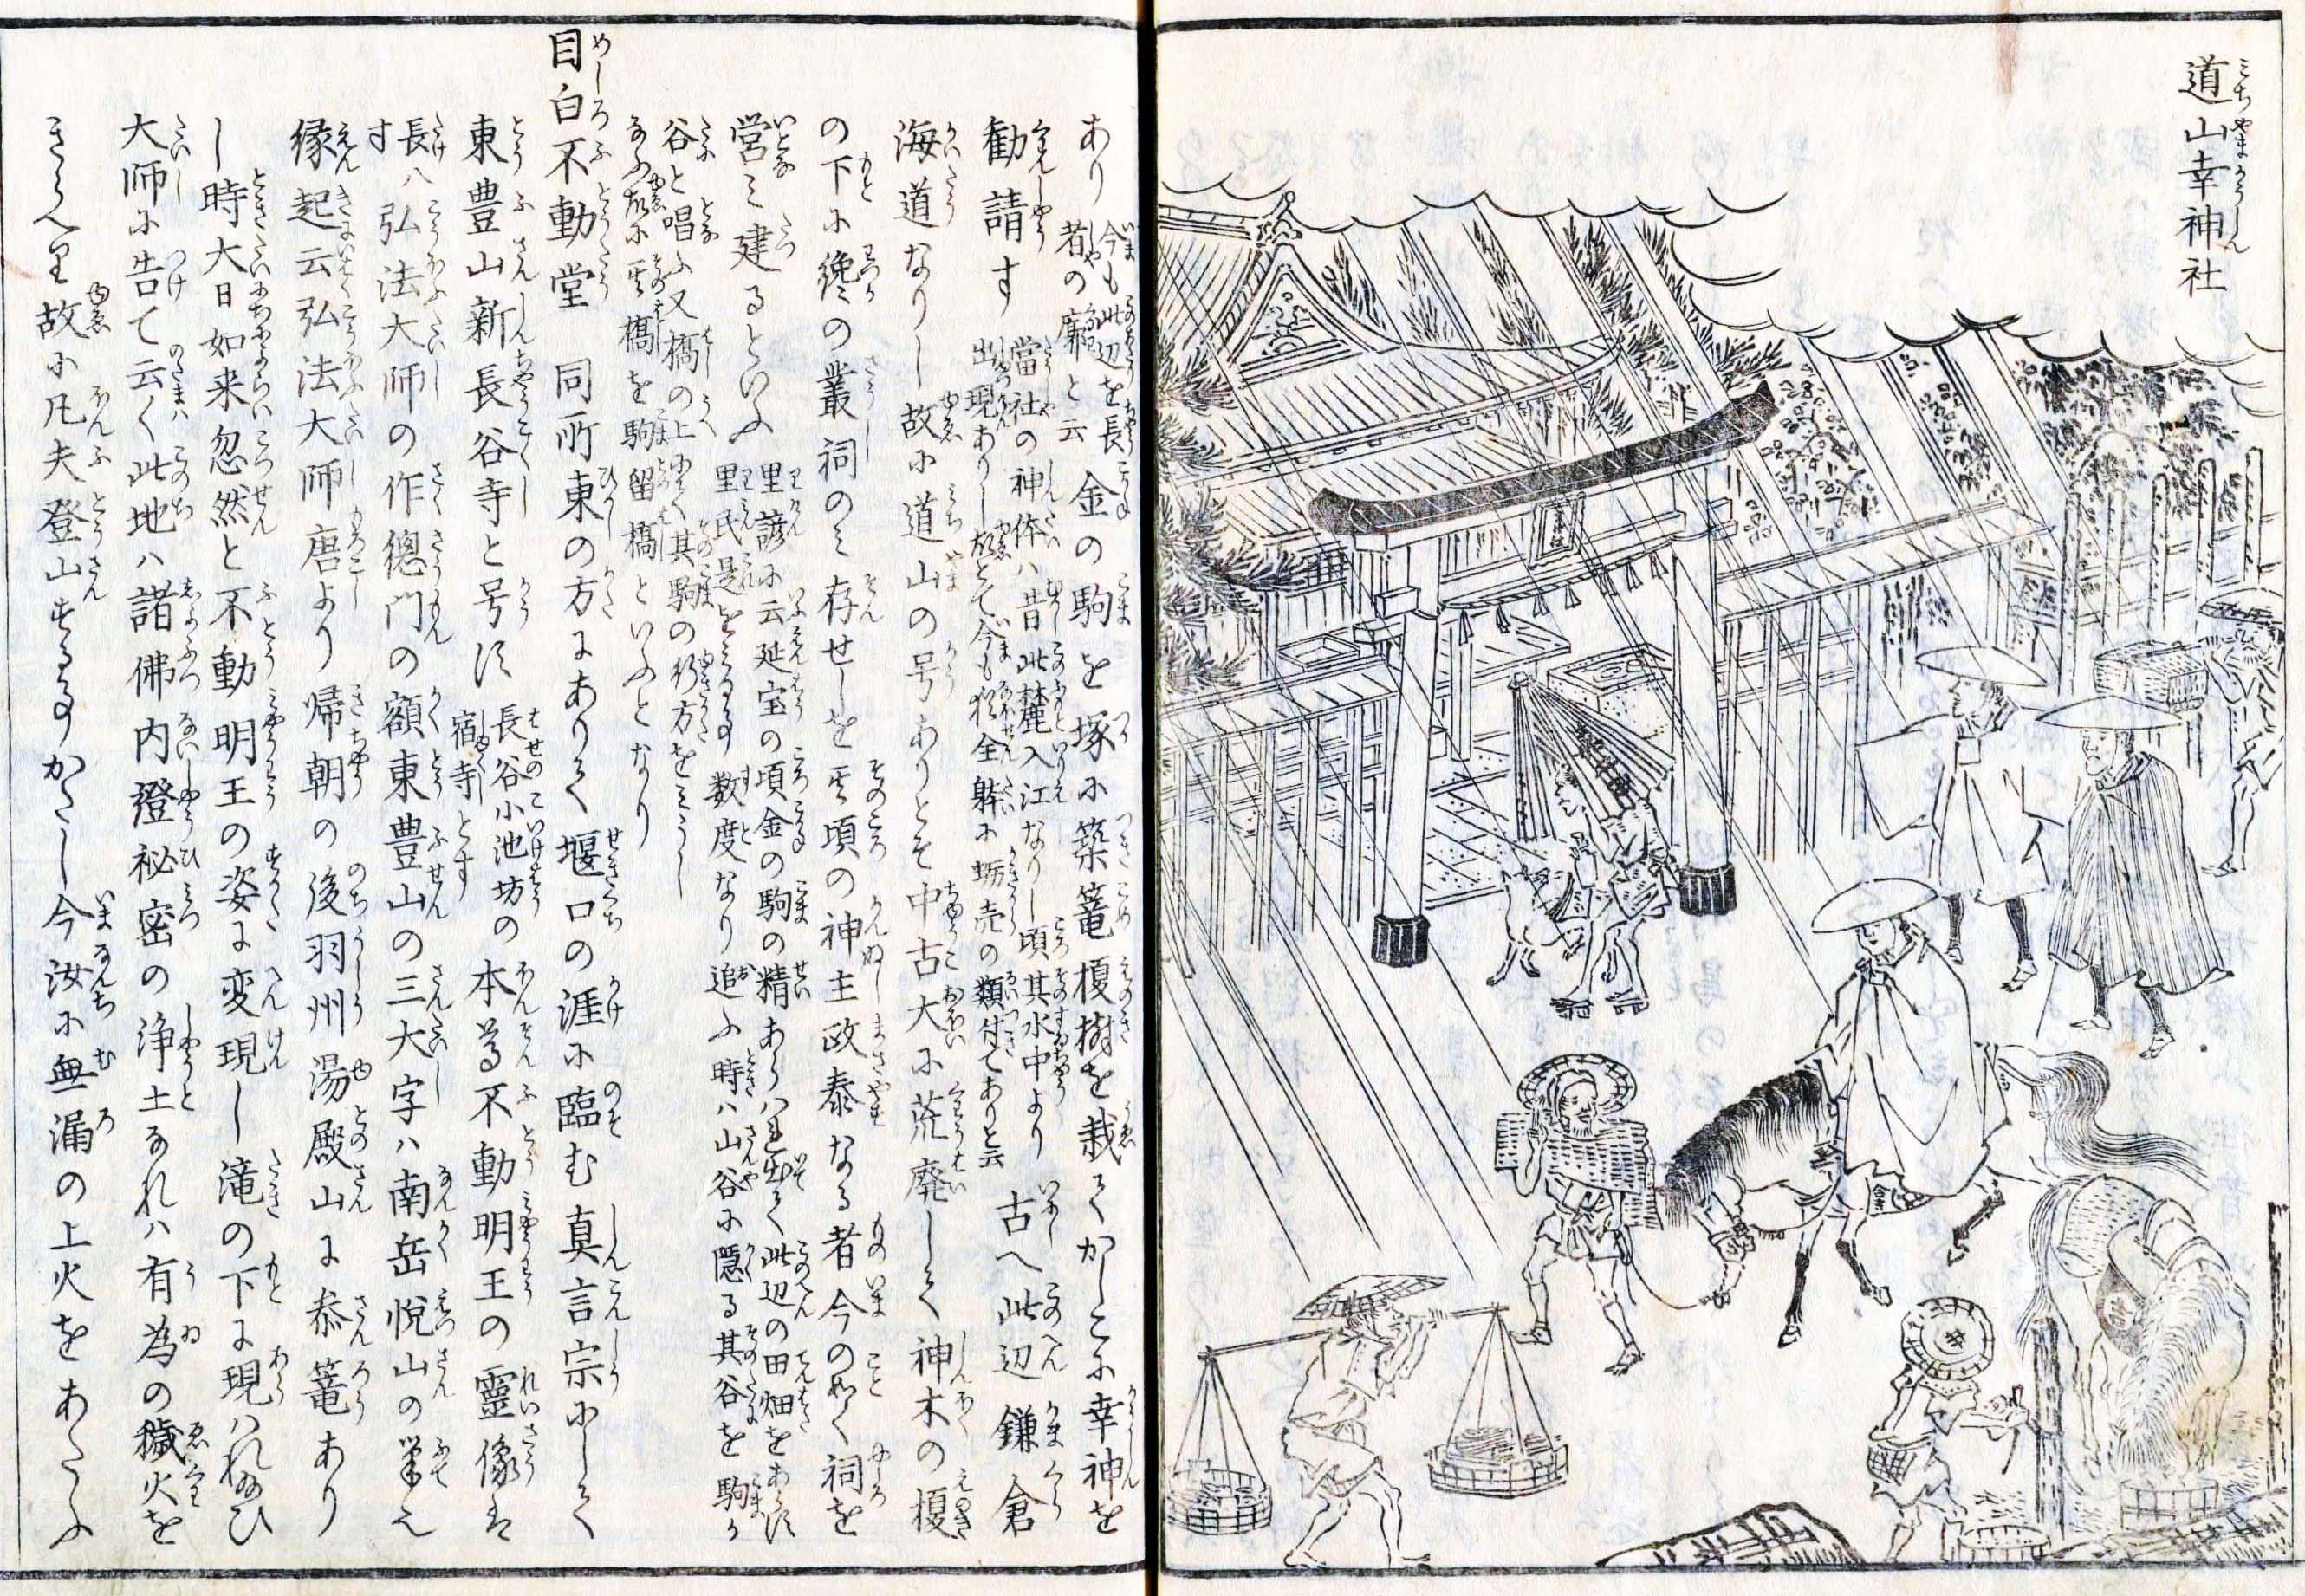 道山幸神社
あり今も此辺を長者の廓と云金の駒を塚に築篭榎樹を栽てかしこに幸神を
勧請す當社の神体ハ昔此麓入江なりし頃其水中より出現ありし故とて今も猶全躰に蛎売の類付てありと云古へ此辺鎌倉
海道なりし故に道山の号ありとそ中古大に荒廃して神木の榎
の下に纔の叢祠のミ存せしを其頃の神主政泰なる者今の如く祠を
営ミ建るといふ里諺に云延宝の頃金の駒の精あらハれ出て此辺の田畑をあらす里民是をとる事数度なり追ふ時ハ山谷に隠る其谷を駒か
谷と唱ふ又橋の上にて其駒の行方をミうしなふ故に其橋を駒留橋といふとなり
目白不動堂 同所東の方にありて堰口の涯に臨む真言宗にして
東豊山新長谷寺と号す長谷小池坊の宿寺とす本尊不動明王の靈像は
長八す弘法大師の作總門の額東豊山の三大字ハ南岳悦山の筆也
縁起云弘法大師唐より帰朝の後羽州湯殿山に参篭あり
し時大日如来忽然と不動明王の姿に変現し滝の下に現ハれ給ひ
大師に告て云く此地ハ諸佛内證祕密の浄土なれハ有為の穢火を
きらへり故に凡夫登山する事かたし今汝に無漏の上火をあたふ